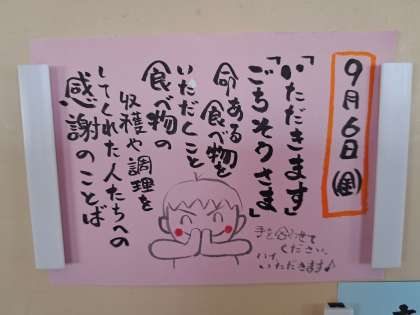 9月6日(金)
「いただきます」
「ごちそうさま」
命ある食べ物を
いただくこと
食べ物の
収穫や調理を
してくれた人たちへの
感謝のことば
手を合わせて
ください。
ハイ、
いただきます♪